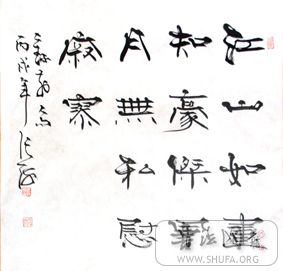 江山如畫
知豪傑風
月無私慰
寂寥
丙戌年
WWW.SHUFA.ORG